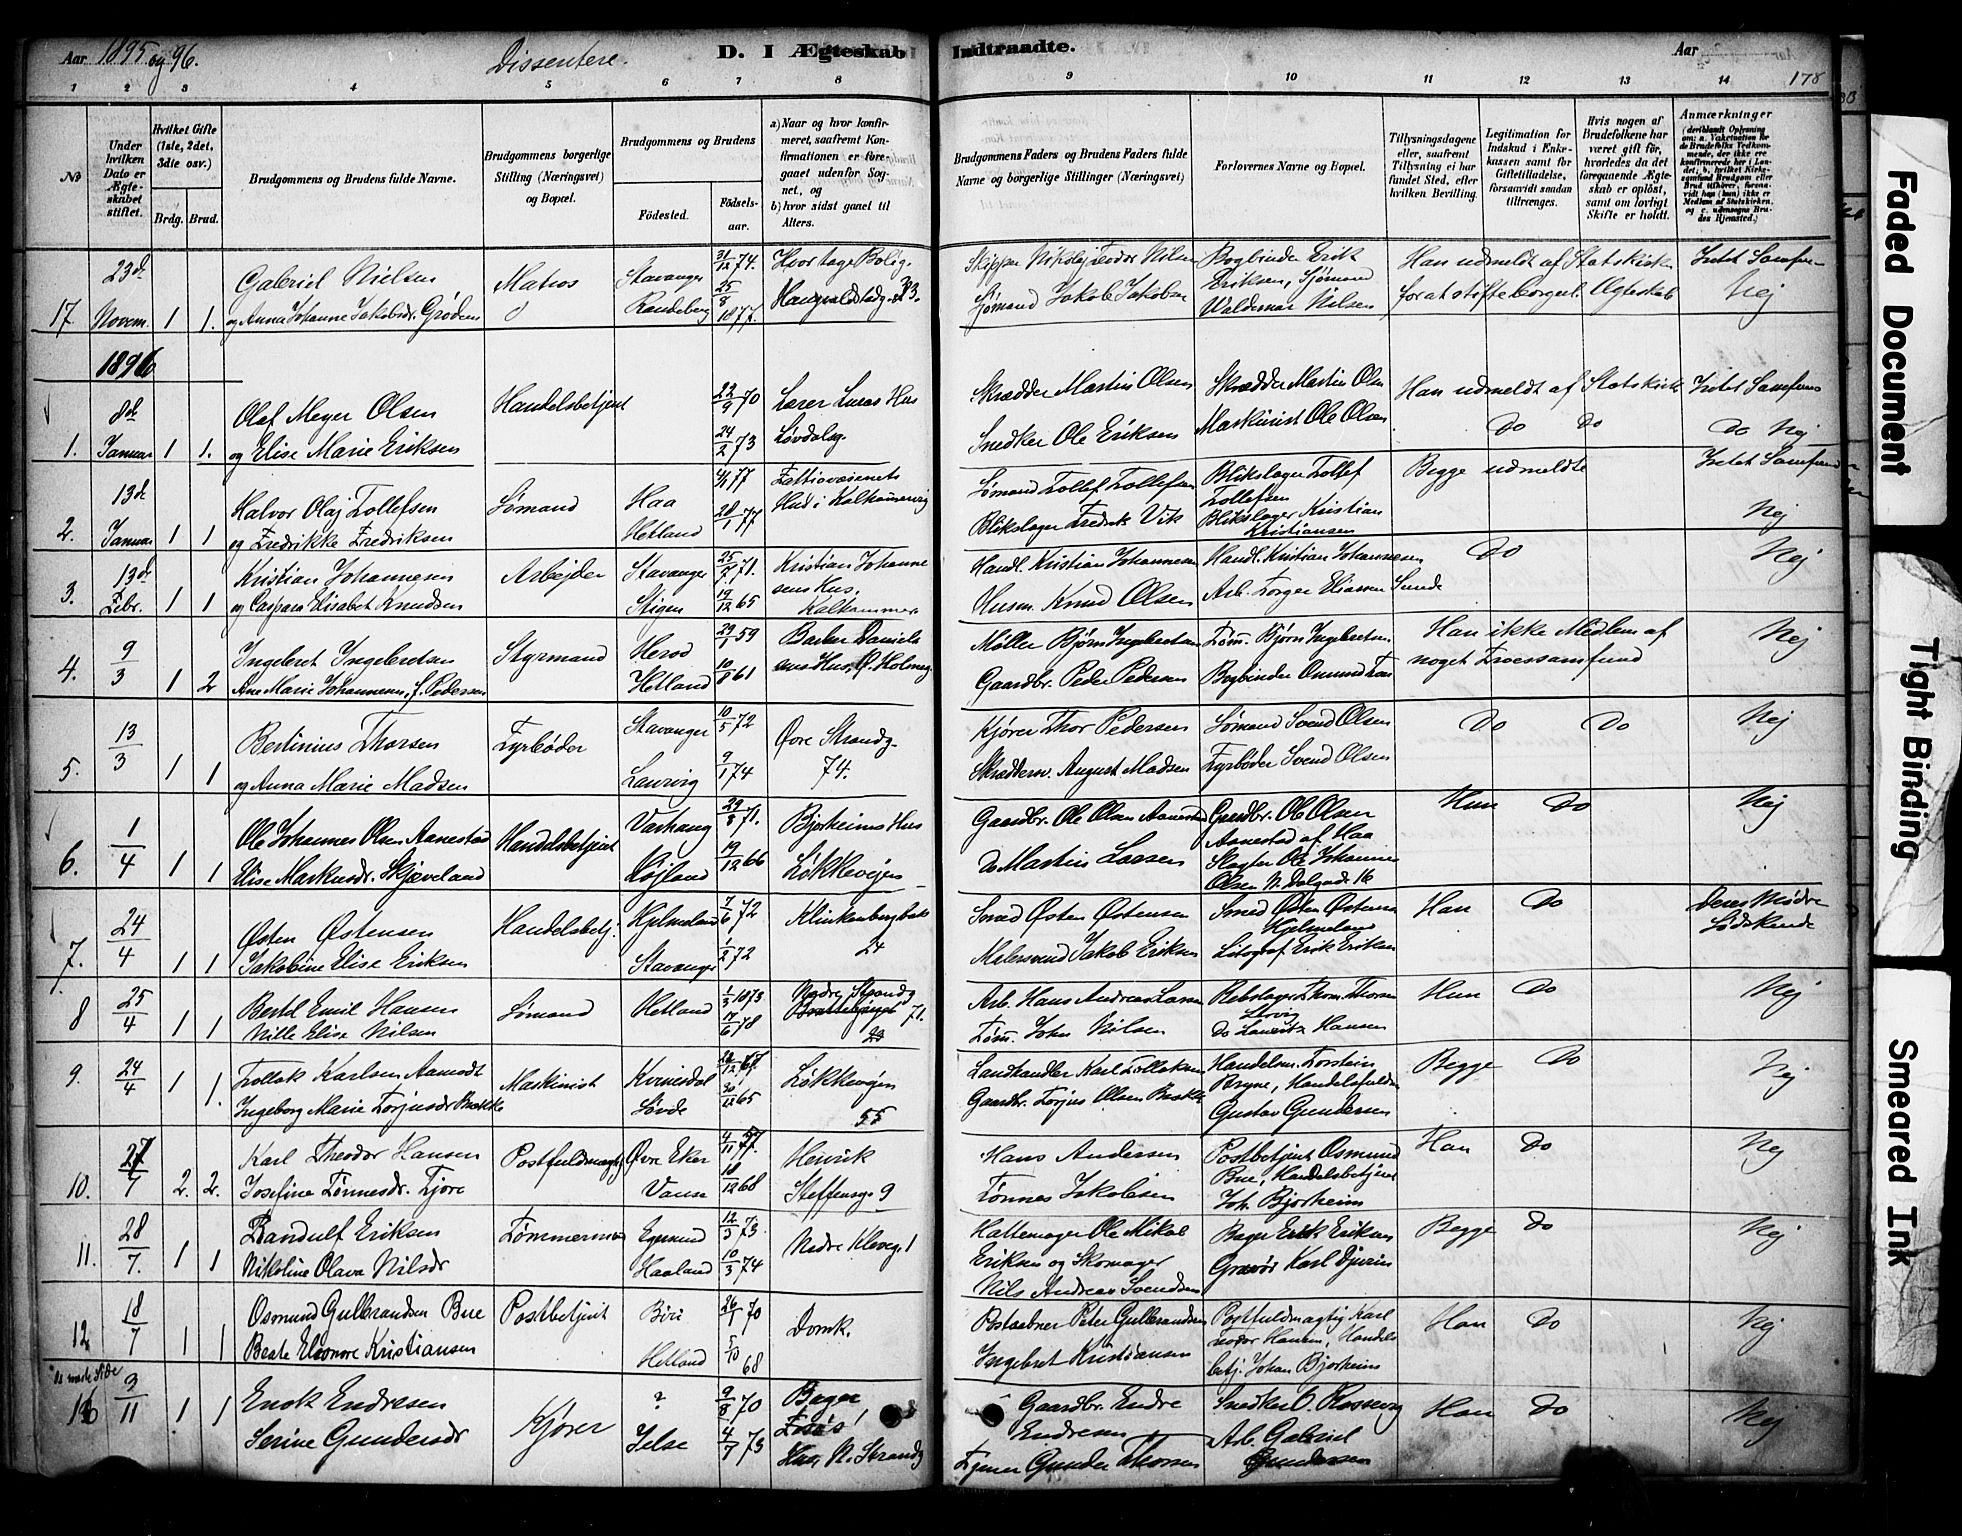 Aar 1895 og 96.
Dissentere.
D. I Ægteskab Indtraadte.
Aar
178
1 2 3 4 5 6 7 8 9 10 11 12 13 14
No
Under hvilken Dato er Ægteskabet stiftet.
Hvilket Gifte (1ste, 2det, 3die osv.)
Brdg. Brud.
Brudgommens og Brudens fulde Navne.
Brudgommens borgerlige Stilling (Næringsvei) og Bopæl.
Brudgommens og Brudens
Födested.
Födsels-aar.
a) Naar og hvor konfirmeret, saafremt Konfirmationen er foregaaet udenfor Sognet, og
b) hvor sidst gaaet til Alters.
Brudgommens Faders og Brudens Faders fulde Navne og borgerlige Stillinger (Næringsvei)
Forlovernes Navne og Bopæl.
Tillysningsdagene eller, saafremt Tillysning ei har fundet Sted, efter hvilken Bevilling.
Legitimation for Indskud i Enkekassen samt for Giftetilladelse, forsaavidt saadan tiltrænges.
Hvis nogen af Brudefolkene har været gift før, hvorledes da det foregaaende Ægteskab er opløst, samt om lovligt Skifte er holdt.
Anmærkninger
17 23de Novem. 1 1.
Gabriel Nielsen
og Anna Johanne Jakobsdr. Grødem
Matros
Stavanger
Randeberg
31/12 74.
25/8 1877.
Sjømand Jakob Jakobsen
Bogbinder Erik Eriksen, Sjømand
Waldemar Nilsen
Han udmeldt af Statskirk
for at stifte borgerl. Ægteskab
Intet Samfun
Nej
1896
1. 8de Januar 1 1.
Olaf Meyer Olsen
og Elise Marie Eriksen
Handelsbetjent
22/9 70
24/2 73
Løvdalsg.
Skrædder Martin Olsen
Snedker Ole Eriksen
Skrædder Martin Olsen
Maskinist Ole Olsen
Han udmeldt af Statskirk
Do Do
Intet Samfund
Do Nej
2. 13de Januar 1 1
Halvor Olaj Tollefsen
og Fredrikke Fredriksen
Sømand
Haa
Hetland
28/1 77
Sømand Tollef Tollefsen
Blikslager Fredrik Vik
Blikslager Tollef Tollefsen
Blikslager Kristian Kristiansen
Begge udmeldte
Intet Samfund
Nej
3. 13de Febr. 1 1
Kristian Johannesen
og Caspara Elisabet Knudsen
Arbejder
Stavanger
Stigen
25/7 71.
19/12 65
Kristian Johannesens Hus,
Kalhammer
Handl. Kristian Johannesen
Husm. Knud Olsen
Handl. Kristian Johannesen
Arb. Torger Eliassen Sunde
Do
Nej
4. 9/3 1 2
Ingebret Ingebretsen
Ane Marie Johannesen, f. Pedersen
Styrmand
Herod
Hetland
29/1 59
10/8 61
Møller Bjørn Ingebretsen
Gaardbr. Peder Pedersen
Tøm. Bjørn Ingebretsen
Bogbinder
Han ikke Medlem af
noget Troessamfund
Nej
5. 13/3 1 1
Bertinius Thorsen
og Anna Marie Madsen
Fyrbøder
Stavanger
Laurvig
10/5 72
9/1 74
Øvre Strandg.
74.
Kjører Thor Pedersen
Skrædderm. August Madsen
Sømand Svend Olsen
Fyrbøder Svend Olsen
Do Do
Nej
6. 1/4 1 1
Ole Johannes Olsen Aanestad
Elise Markusdr. Skjæveland
Handelsbetjent
Varhaug
Høiland
29/8 71.
19/12 66
Bjorheims Hus
Løkkevejen
Gaardbr. Ole Olsen Aanestad
Do Martin Larsen
Gaardbr. Ole Olsen
Aanestad af Haa
Slagter Ole Johannes
Olsen N. Dalgade 16
Hun Do
Nej
7. 24/4 1 1
Østen Østensen
Jakobine Elise Eriksen
Handelsbetj.
Hjelmeland
Stavanger
7/6 72
1/2 72
Klinkenberg
24
Smed Østen Østensen
Malersvend Jakob Eriksen
Smed Østen Østensen
Hjelmeland
Litograf Erik Eriksen
Han Do
Deres Mødre
Sødskende
8 25/4 1 1
Bertel Emil Hansen
Nille Elise Nilsen
Sømand
Hetland
1/3 1873
17/6 78
Nedre Strandg
71.
Arb. Hans Andreas Larsen
Tøm. John Nilsen
Rebslager Thom. Thorsen
Do Lauritz Hansen
Hun Do
Nej
9. 24/4 1 1.
Tollak Karlsen Aamodt
Ingeborg Marie Torjusdr Bakke
Maskinist
Kvinesdal
Søvde
30/12 65
Løkkevejen
55
Landhandler Karl Tollaksen
Gaardbr. Torjus Olsen Bakke
Handelsm. Torstein
Bryne, Handelsfuldm
Gustav Gundersen
Begge Do
Nej
10. 27/7 2. 2.
Karl Theodor Hansen
Josefine Tønnesdr. Fjore
Postfuldmægtig
Øvre Eker
Vanse
4/11 57.
18/12 68
Henrik
Steffensg. 9
Hans Andersen
Tønnes Jakobsen
Postbetjent Osmund
Bue, Handelsbetjent
Joh. Bjorheim
Han Do
Nej
11. 28/7. 1 1
Bandulf Eriksen
Nikoline Olava Nilsdr
Tømmermand
Egersund
Haaland
12/3 73
10/3 74
Nedre Kleveg. 1
Hattemager Ole Mikal
Eriksen og Skomager
Nils Andreas Svendsen
Bager Erik Eriksen
Gravør Karl
Begge Do
Nej
12. 18/7 1 1
Osmund Gulbrandsen Bue
Beate Eleonore Kristiansen
Postbetjent
Biri
Hetland
26/1 70
5/10 68
Domk.
Postaabner Peter Gulbrandsen
Ingebret Kristiansen
Postfuldmægtig Karl
Teodor Hansen, Handels
betj. Johan Bjorheim
Han Do
Nej
16 3/11 1 1
Enok Endresen
Serine Gundersdr
Kjører
?
Jelse
9/8 70
4/7 73
Bager
Hus, N. Strandg
Gaardbr. Endre
Endresen
Gunder Thorsen
Snedker O. Rossevig
Arb. Gabriel
Gundersen
Han Do
Nej
Faded Document
Tight Binding
Smeared Ink